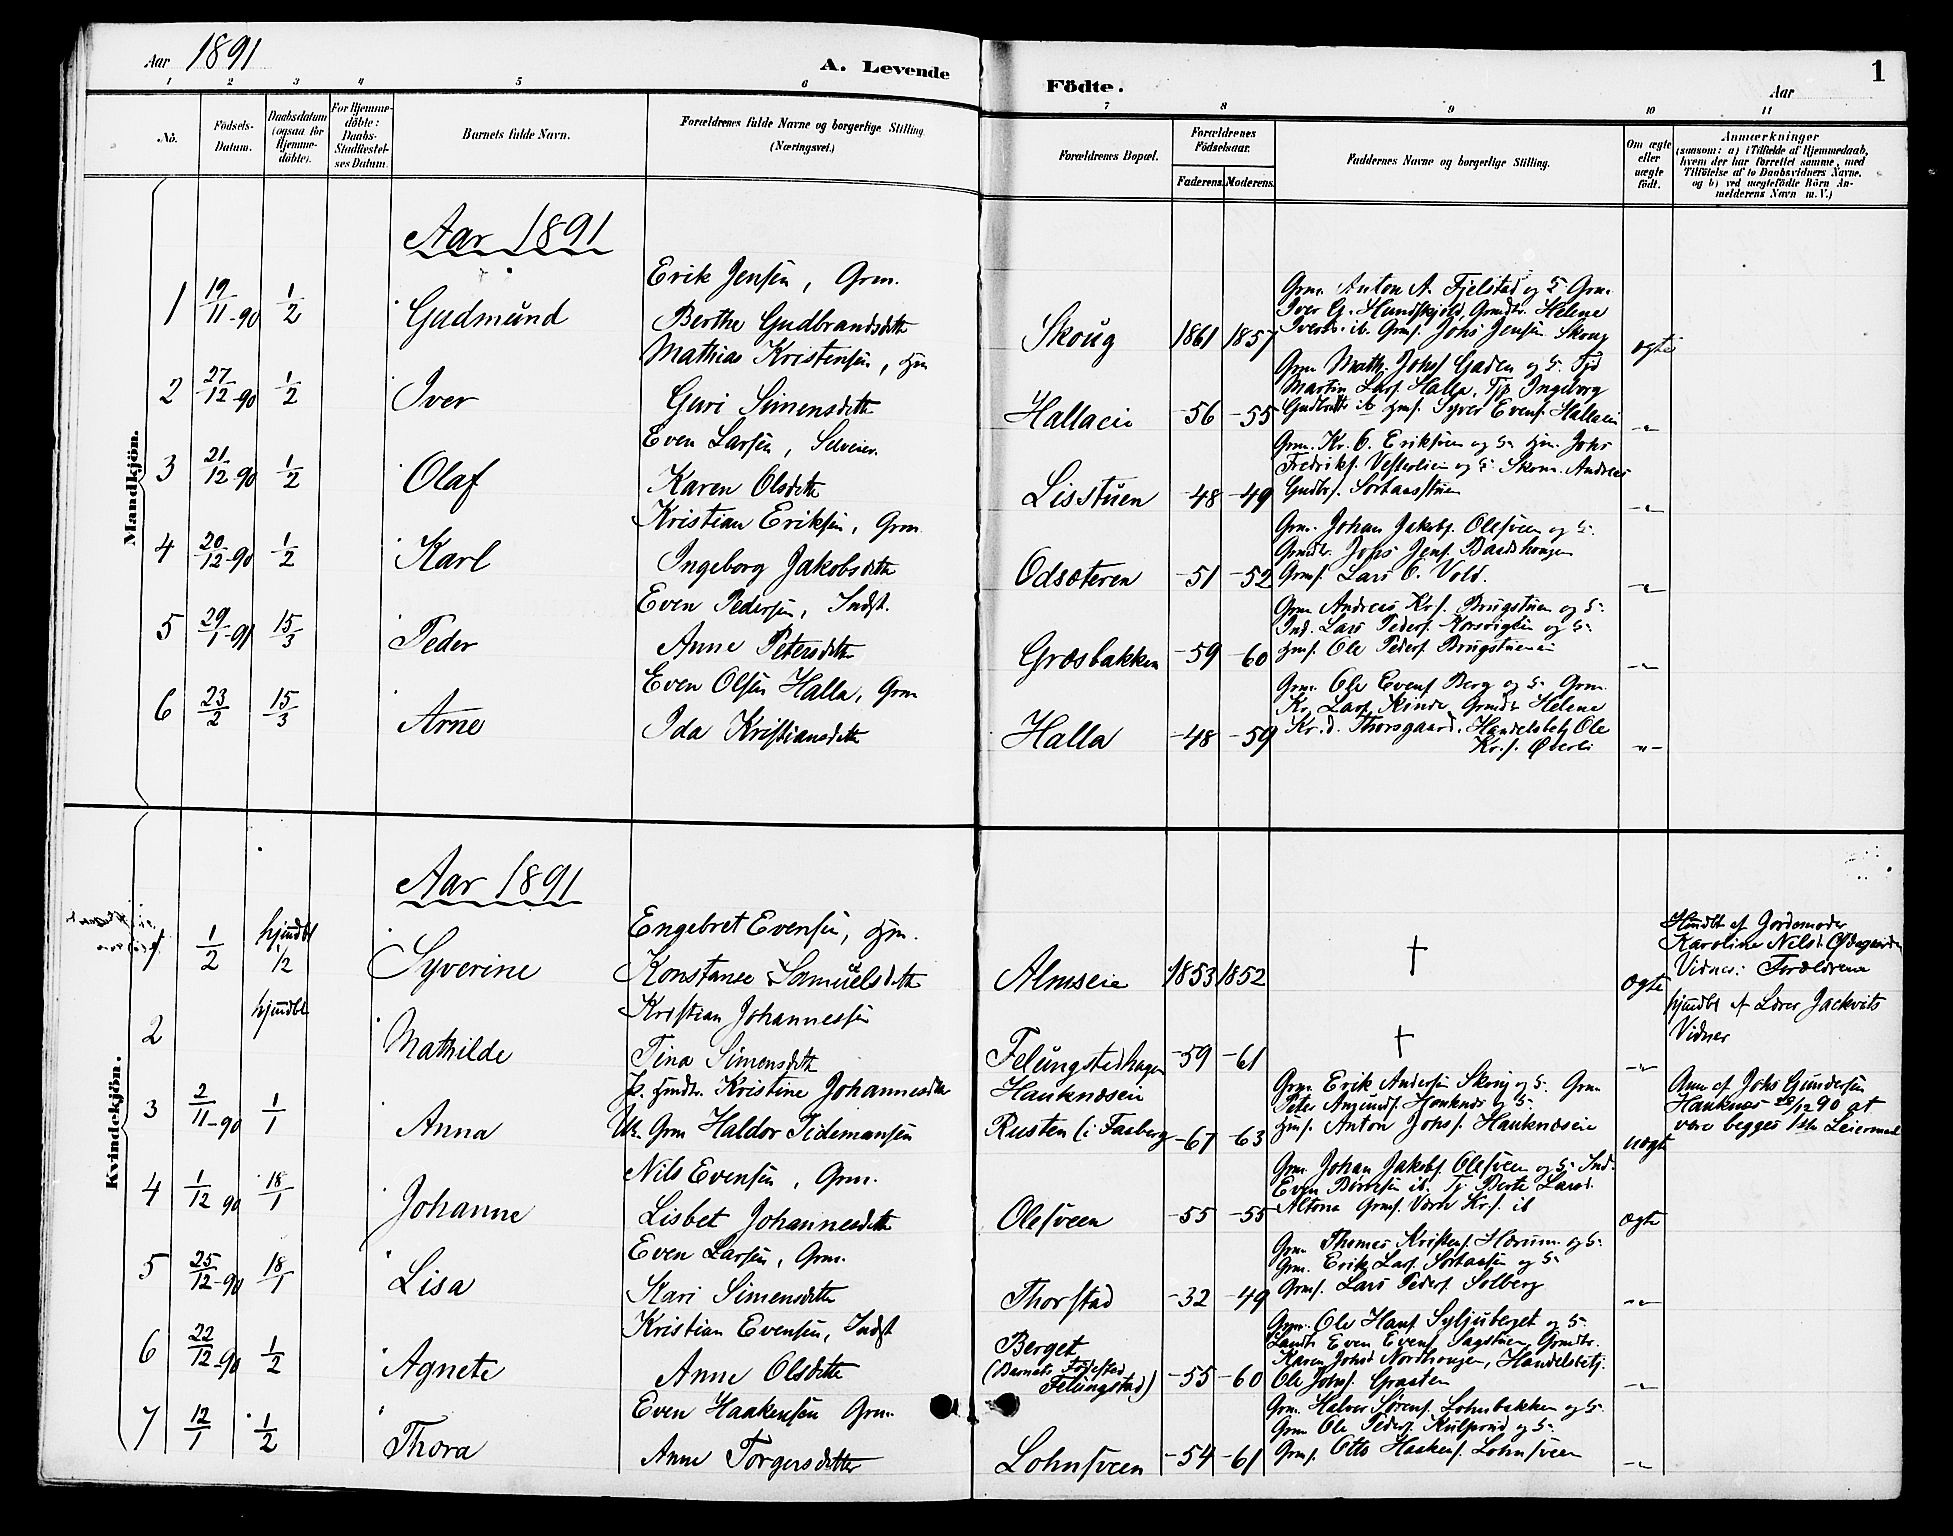 Aar 1891
A. Levende
Födte.
Aar
1
1 2 3 4 5 6 7 8 9 10 11
No.
Födsels-Datum.
Daabsdatum (ogsaa for Hjemme-döbte).
For Hjemme-döbte: Daabs-Stadfæstel-ses Datum.
Barnets fulde Navn.
Forældrenes fulde Navne og borgerlige Stilling
(Næringsvei.)
Forældrenes Bopæl.
Forældrenes Födselsaar.
Faderens. Moderens.
Faddernes Navne og borgerlige Stilling.
Om ægte eller uægte født.
Anmærkninger
(saasom: a) i Tilfælde af Hjemmedaab,
hvem der har forrettet samme, med
Tilföielse af to Daabsvidners Navne.
og b) ved uægtefödte Börn An-
melderens Navn m. V.)
Mandkjön.
Aar 1891
1 19/11-90 1/2 Gudmund
Erik Jensen, Grm.
Berthe Gudbrandsdttr
Skoug 1861 1857
Grm. Anton A. Fjelstad og H. Grm.
Iver G. Hundskjold, Grmdtr. Helene
Iversd. ib. Grms. Johs Jensen Skoug
ægte
2 27/12-90 1/2 Iver
Mathias Kristensen, Hjm
Guri Simensdttr
Hallaeie -56 -55
Grm Math. Johs Gaden og H. Tjd
Martin Lars. Halla, Tjp Ingeborg
Gudbrdtr ib Hjms. Syver Evens. Hallaeie
-"-
3 21/12-90 1/2 Olaf
Even Larsen, Selveier
Karen Olsdttr
Lisstuen -48 -49
Grm. Kr. O. Eriksveen og H. Hjm. Johs
Fredriks. Vesterlien og H. Skom. Andreas
Gudbrs. Sørhaasstuen
-"-
4 20/12-90 1/2 Karl
Kristian Eriksen, Grm
Ingeborg Jakobsdttr
Odsæteren -51 -52
Grm. Johan Jakobs. Olesveen og H.
Grmdtr. Johs Jens. Baadshaugen
Grms. Lars O. Vold.
-"-
5 29/1-91 15/3 Peder
Even Pedersen, Indst.
Anne Petersdttr
Græsbakken -59 -60
Grm Andreas Kr.s. Brugstuen og H.
Ind. Lars Peders. Korsvigen og H.
Hjms. Ole Peders. Brugstueneie
-"-
6 23/2 15/3 Arne
Even Olsen Halla, Grm
Ida Kristiansdttr
Halla -48 -59
Grm. Ole Evens Berg og H. Grm.
Kr. Lars. Kinde, Grmdtr Helene
Kr.d. Thorsgaard, Handelsbetj Ole
Kr.s. Øverli
-"-
Kvindekjön.
Aar 1891
1 1/2 hjmdbt 1/2 Syverine
Engebret Evensen, Hjm.
Konstanse Samuelsdttr
Almseie 1853 1852
†
Ægte
Hmdbt af Jordemoder
Karoline Nilsd.
Vidner: Forældrene
2 hjmdbt Mathilde
Kristian Johannessen
Tina Simensdttr
Felungstadhagen -59 -61
†
-"-
hjmdbt af Lærer Jackvits
Vidner
3 2/11-90 1/1 Anna
P. Hjmdtr. Kristine Johannesdttr
U. Grm Haldor Tidemansen
Hauknæseie
Rusten (i Faaberg -67 -63
Grm. Erik Andersen Skoug og H. Grm
Peter Amunds. Hauknæs og H.
Hjms. Anton Johs s. Hauknæseie
uægte
Anm af Johs Gundersen
Hauknæs 28/12 90 at
være begges 1ste Leiermaal
4 1/12 90 18/1 Johanne
Nils Evensen, Grm.
Lisbet Johannesdttr
Olesveen -55 -55
Grm. Johan Jakobs. Olesveen og H. Ind.
Even Børresen ib. Tj. Berte Larsd.
Altona Grms. Kr.s. ib
Ægte
5 25/12-90 18/1 Lisa
Even Larsen, Grm.
Kari Simensdttr
Thorstad -32 -49
Grm Thomas Kristens. Hærum og H.
Grm. Erik Lars. Sørhaasen og H.
Grms. Lars Peders. Solberg
-"-
6 22/12-90 1/2 Agnete
Kristian Evensen, Indst
Anne Olsdttr
Berget
(Barnets Fødested
Felungstad) -55 -60
Grm. Ole Hans. Syljuberget og H.
Landh. Even Evens. Sagstuen, Grmdtr.
Karen Johsd Nordhougen, Handelsbetj.
Ole Johs s. Graaten
-"-
7 12/1 1/2 Thora
Even Haakensen Grm.
Anne Torgersdatter
Lohnsveen -54 -61
Grm. Halvor Sørens. Lohnbakken og H.
Grm Ole Peders. Kulsrud og H.
Grms. Otto Haakens. Lohnsveen
-"-